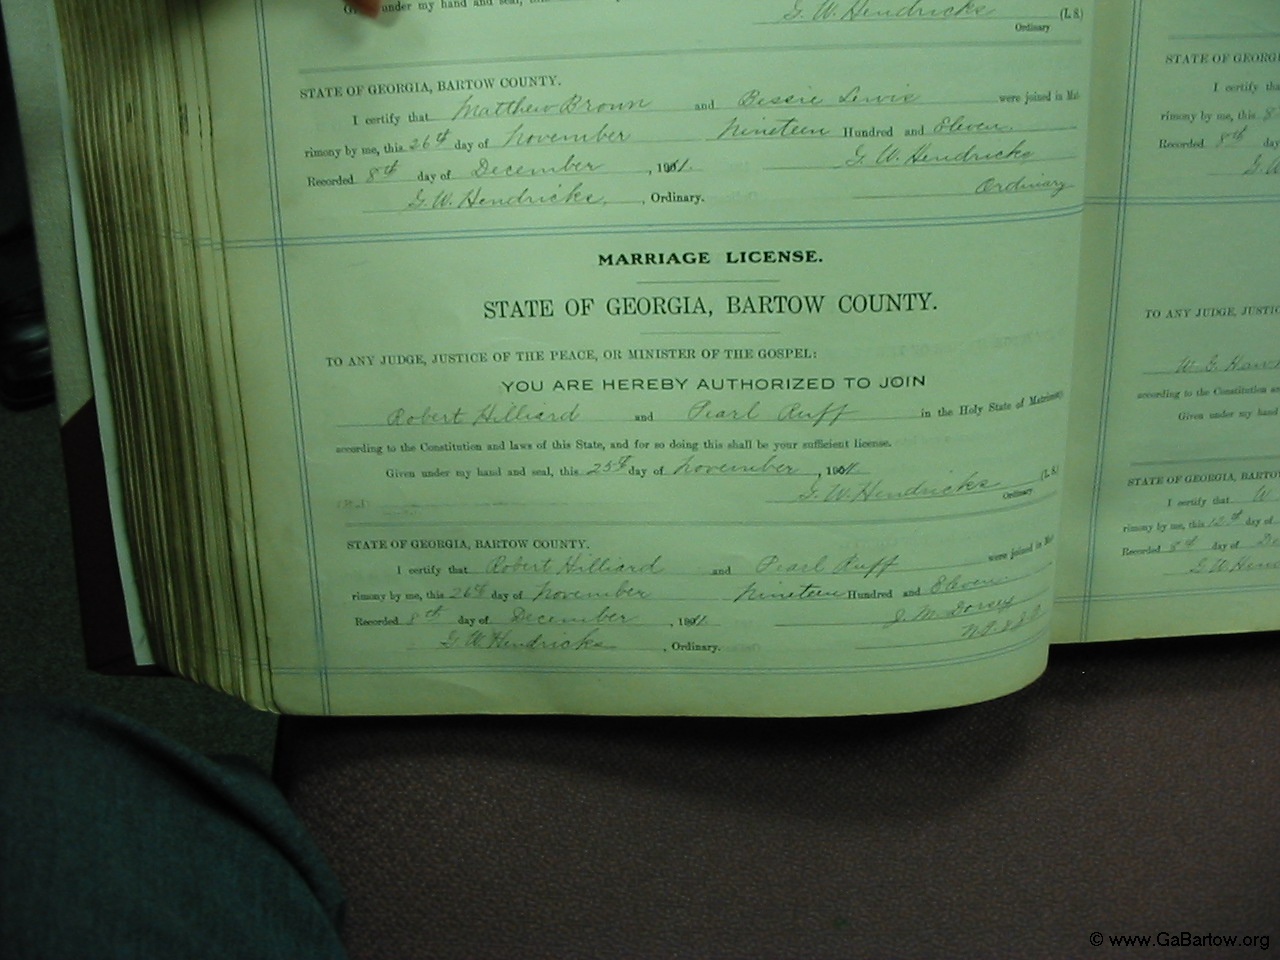 under my hand and seal,
G. W. Hendricks (L. S.)
Ordinary
STATE OF GEORGIA, BARTOW COUNTY.
I certify that Matthew Brown and Bessie Lewis were joined in Mat-
rimony by me, this 26th day of November Nineteen Hundred and Eleven.
Recorded 8th day of December, 1911. G. W. Hendricks
G. W. Hendricks, Ordinary. Ordinary
MARRIAGE LICENSE.
STATE OF GEORGIA, BARTOW COUNTY.
TO ANY JUDGE, JUSTICE OF THE PEACE, OR MINISTER OF THE GOSPEL:
YOU ARE HEREBY AUTHORIZED TO JOIN
Robert Hilliard and Pearl Ruff in the Holy State of Matrimony
according to the Constitution and laws of this State, and for so doing this shall be your sufficient license.
Given under my hand and seal, this 25th day of November, 1911.
G. W. Hendricks (L. S.)
Ordinary
STATE OF GEORGIA, BARTOW COUNTY.
I certify that Robert Hilliard and Pearl Ruff were joined in Mat-
rimony by me, this 26th day of November Nineteen Hundred and Eleven.
Recorded 8th day of December, 1911. J. M. Dorsey
G. W. Hendricks, Ordinary.
STATE OF GEORGI
I certify tha
rimony by me, this 8
8th day
G. W
TO ANY JUDGE, JUSTIC
W. G.
according to the Constitution a
Given under my hand
STATE OF GEORGIA, BARTO
I certify that W
rimony by me, this 12th day of
Recorded 8th day of De
G. W. Hend
© www.GaBartow.org